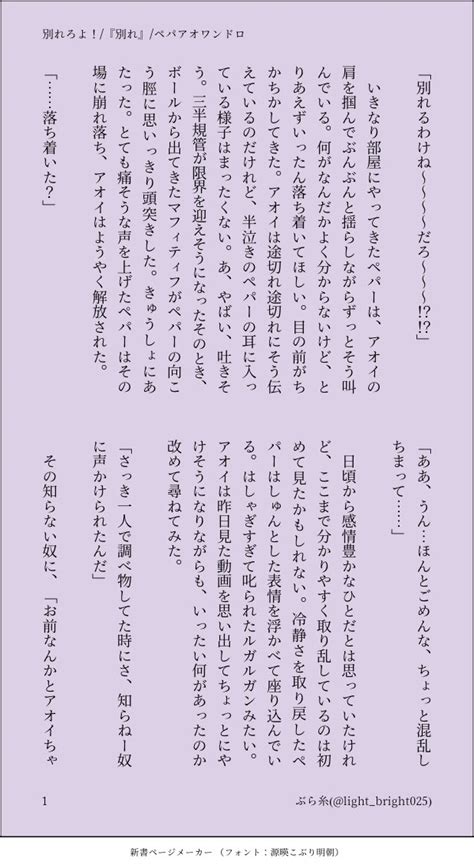 別れろよ！/『別れ』/ペパアオワンドロ
「別れるわけね〜〜〜〜だろ〜〜〜⁉⁉」
　いきなり部屋にやってきたペパーは、アオイの
肩を掴んでぶんぶんと揺らしながらずっとそう叫
んでいる。何がなんだかよく分からないけど、と
りあえずいったん落ち着いてほしい。目の前がち
かちかしてきた。アオイは途切れ途切れにそう伝
えているのだけれど、半泣きのペパーの耳に入っ
ている様子はまったくない。あ、やばい、吐きそ
う。三半規管が限界を迎えそうになったそのとき、
ボールから出てきたマフィティフがペパーの向こ
う脛に思いっきり頭突きした。きゅうしょにあ
たった。とても痛そうな声を上げたペパーはその
場に崩れ落ち、アオイはようやく解放された。
「……落ち着いた？」
「ああ、うん…ほんとごめんな、ちょっと混乱し
ちまって……」
　日頃から感情豊かなひとだとは思っていたけれ
ど、ここまで分かりやすく取り乱しているのは初
めて見たかもしれない。冷静さを取り戻したペ
パーはしゅんとした表情を浮かべて座り込んでい
る。はしゃぎすぎて叱られたルガルガンみたい。
アオイは昨日見た動画を思い出してちょっとにや
けそうになりながらも、いったい何があったのか
改めて尋ねてみた。
「さっき一人で調べ物してた時にさ、知らねー奴
に声かけられたんだ」
　その知らない奴に、「お前なんかとアオイちゃ
1
ぷら糸(@light_bright025)
新書ページメーカー（フォント：源暎こぶり明朝）